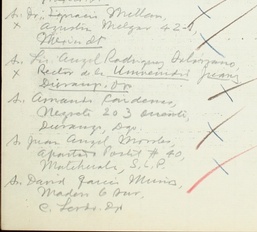 Sr. Dr. Ignacio Mellam,
x Agustin Melgar 42-1,
Mexico DF
Sr. Lic. Angel Rodriguez
x Rector de la Universidad Juarez
Durango, Dgo.
Sr. Armando Cardenas,
Negrete 203
Durango, Dgo.
Sr. Juan Angel Morales,
Apartado Postal # 40,
Matehuala, S.L.P.
Sr. David Garcia Muñoz,
Madero 6 Sur,
C. Lerdo. Dgo